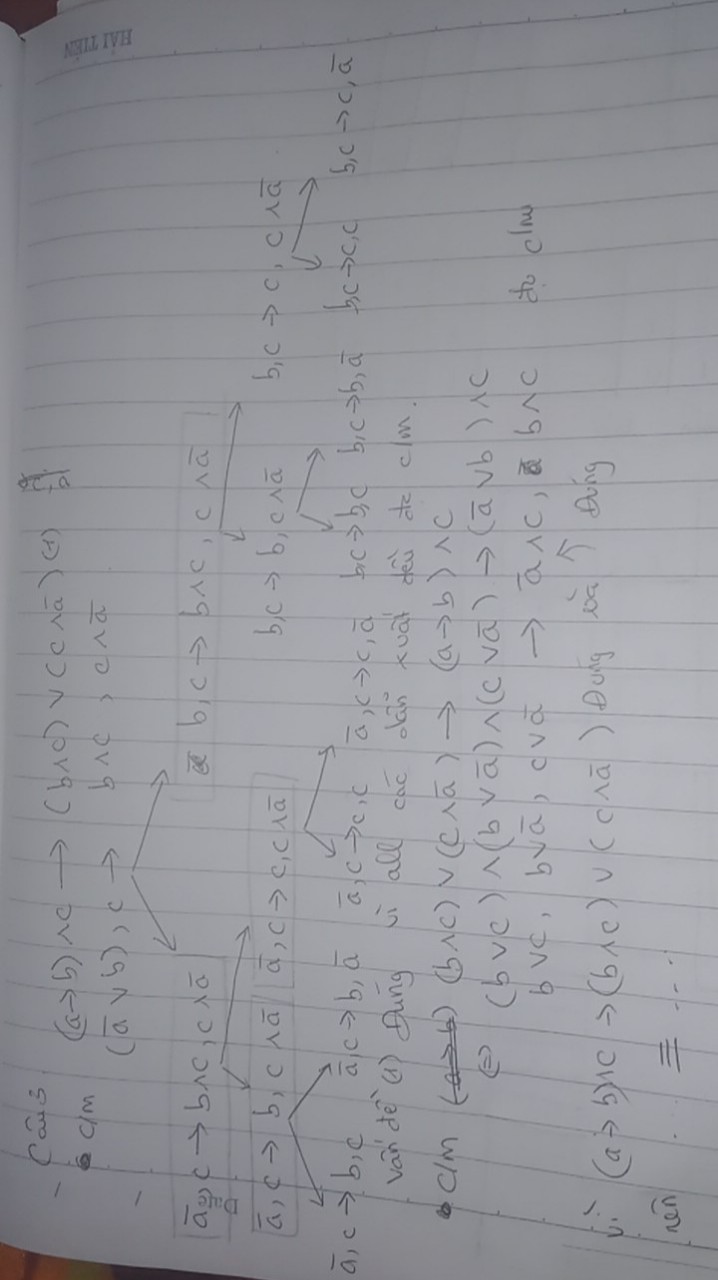 HẢI TIẾN
- Câu 3
c/m (a→b)∧c → (b∧c) ∨ (c∧ā) (1)
- (ā∨b), c → b∧c, c∧ā
ā, c → b∧c, c∧ā b, c → b∧c, c∧ā
ā, c → b, c∧ā ā, c → c, c∧ā b, c → b, c∧ā b, c → c, c∧ā
ā, c → b, c ā, c → b, ā ā, c → c, c ā, c → c, ā b, c → b, c b, c → b, ā b, c → c, c b, c → c, ā
vấn đề (1) Đúng vì all các dẫn xuất đều đc c/m.
c/m (b∧c) ∨ (c∧ā) → (a→b)∧c
⇔ (b∨c) ∧ (b∨ā) ∧ (c∨ā) → (ā∨b)∧c
b∨c, b∨ā, c∨ā → ā∧c, b∧c đc c/m
vì (a→b)∧c → (b∧c) ∨ (c∧ā) Đúng và ↑ Đúng
nên ... ≡ ...